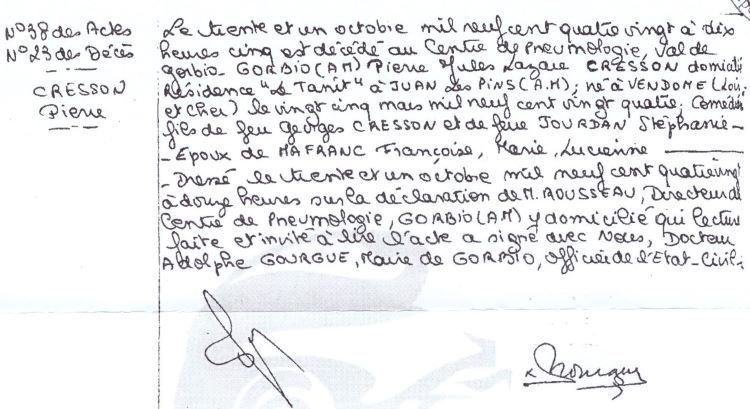 N°38 des Actes
N°23 des Décès
CRESSON
Pierre
Le trente et un octobre mil neuf cent quatre vingt à dix
heures cinq est décédé au Centre de Pneumologie, Val de
Gorbio - GORBIO (AM) Pierre Jules Lazare CRESSON domicilié
Résidence "Le Tanit" à JUAN Les PINS (A.M), né à VENDOME (Loir
et Cher) le vingt cinq mars mil neuf cent vingt quatre, Comédien
fils de feu Georges CRESSON et de feue JOURDAN Stéphanie -
- Epoux de MAFRANC Françoise, Marie, Lucienne
- Dressé le trente et un octobre mil neuf cent quatre vingt
à douze heures sur la déclaration de M. ROUSSEAU, Directeur du
Centre de Pneumologie, GORBIO (AM) y domicilié qui lecture
faite et invité à lire l'acte a signé avec Nous, Docteur
Adolphe GOURGUE, Maire de GORBIO, Officier de l'Etat-Civil.